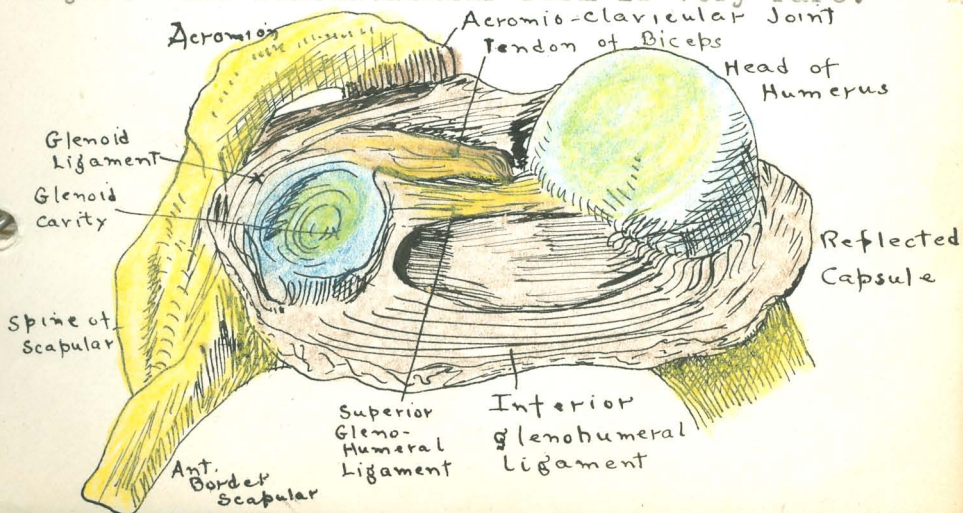 Acromion
Acromio-clavicular Joint
Tendon of Biceps
Head of
Humerus
Glenoid
Ligament
Glenoid
cavity
Reflected
Capsule
Spine of
Scapular
Superior
Gleno-
Humeral
Ligament
Interior
glenohumeral
ligament
Ant.
Border
Scapular